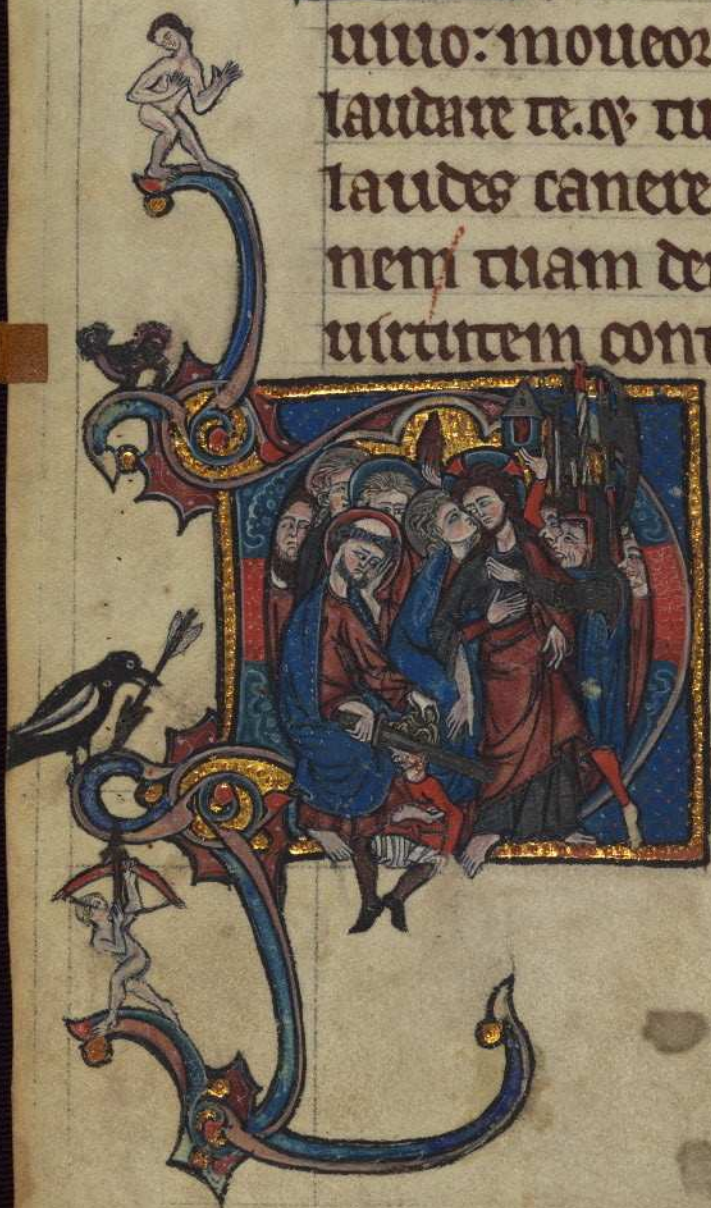 uiuo: moueor
laudare te. qͣ tu
laudes canere
nem tuam de
uirtutem cont